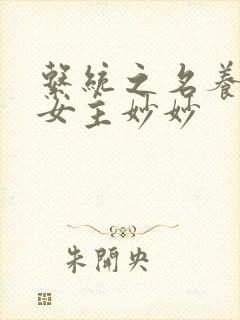 繫統之名養
女主妙妙
朱開央